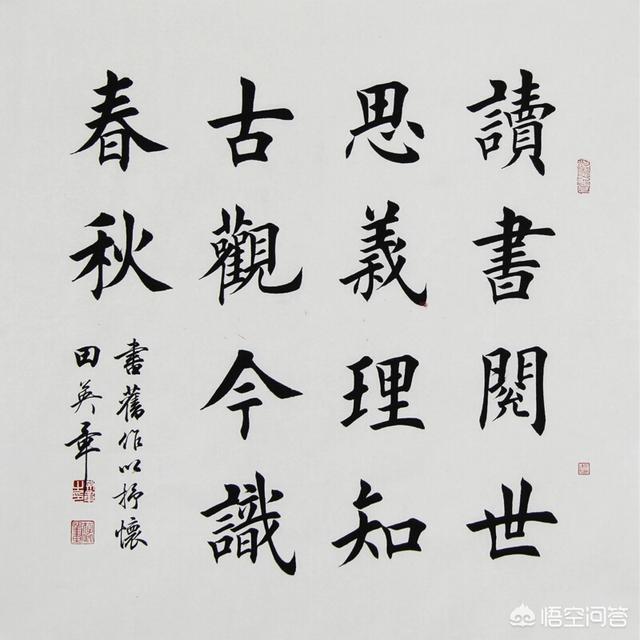 讀書閱世
思義理知
古觀今識
春秋
書舊作以抒懷
田英章
悟空问答